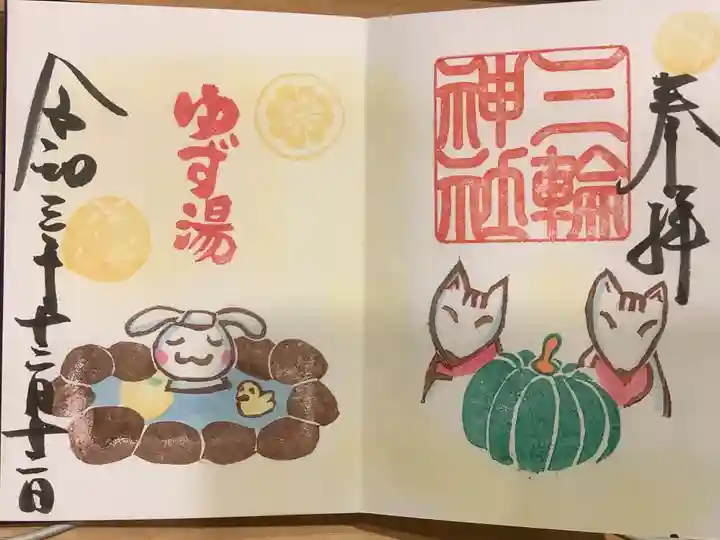 奉拝
三輪
神社
ゆず湯
令和三年十二月十二日